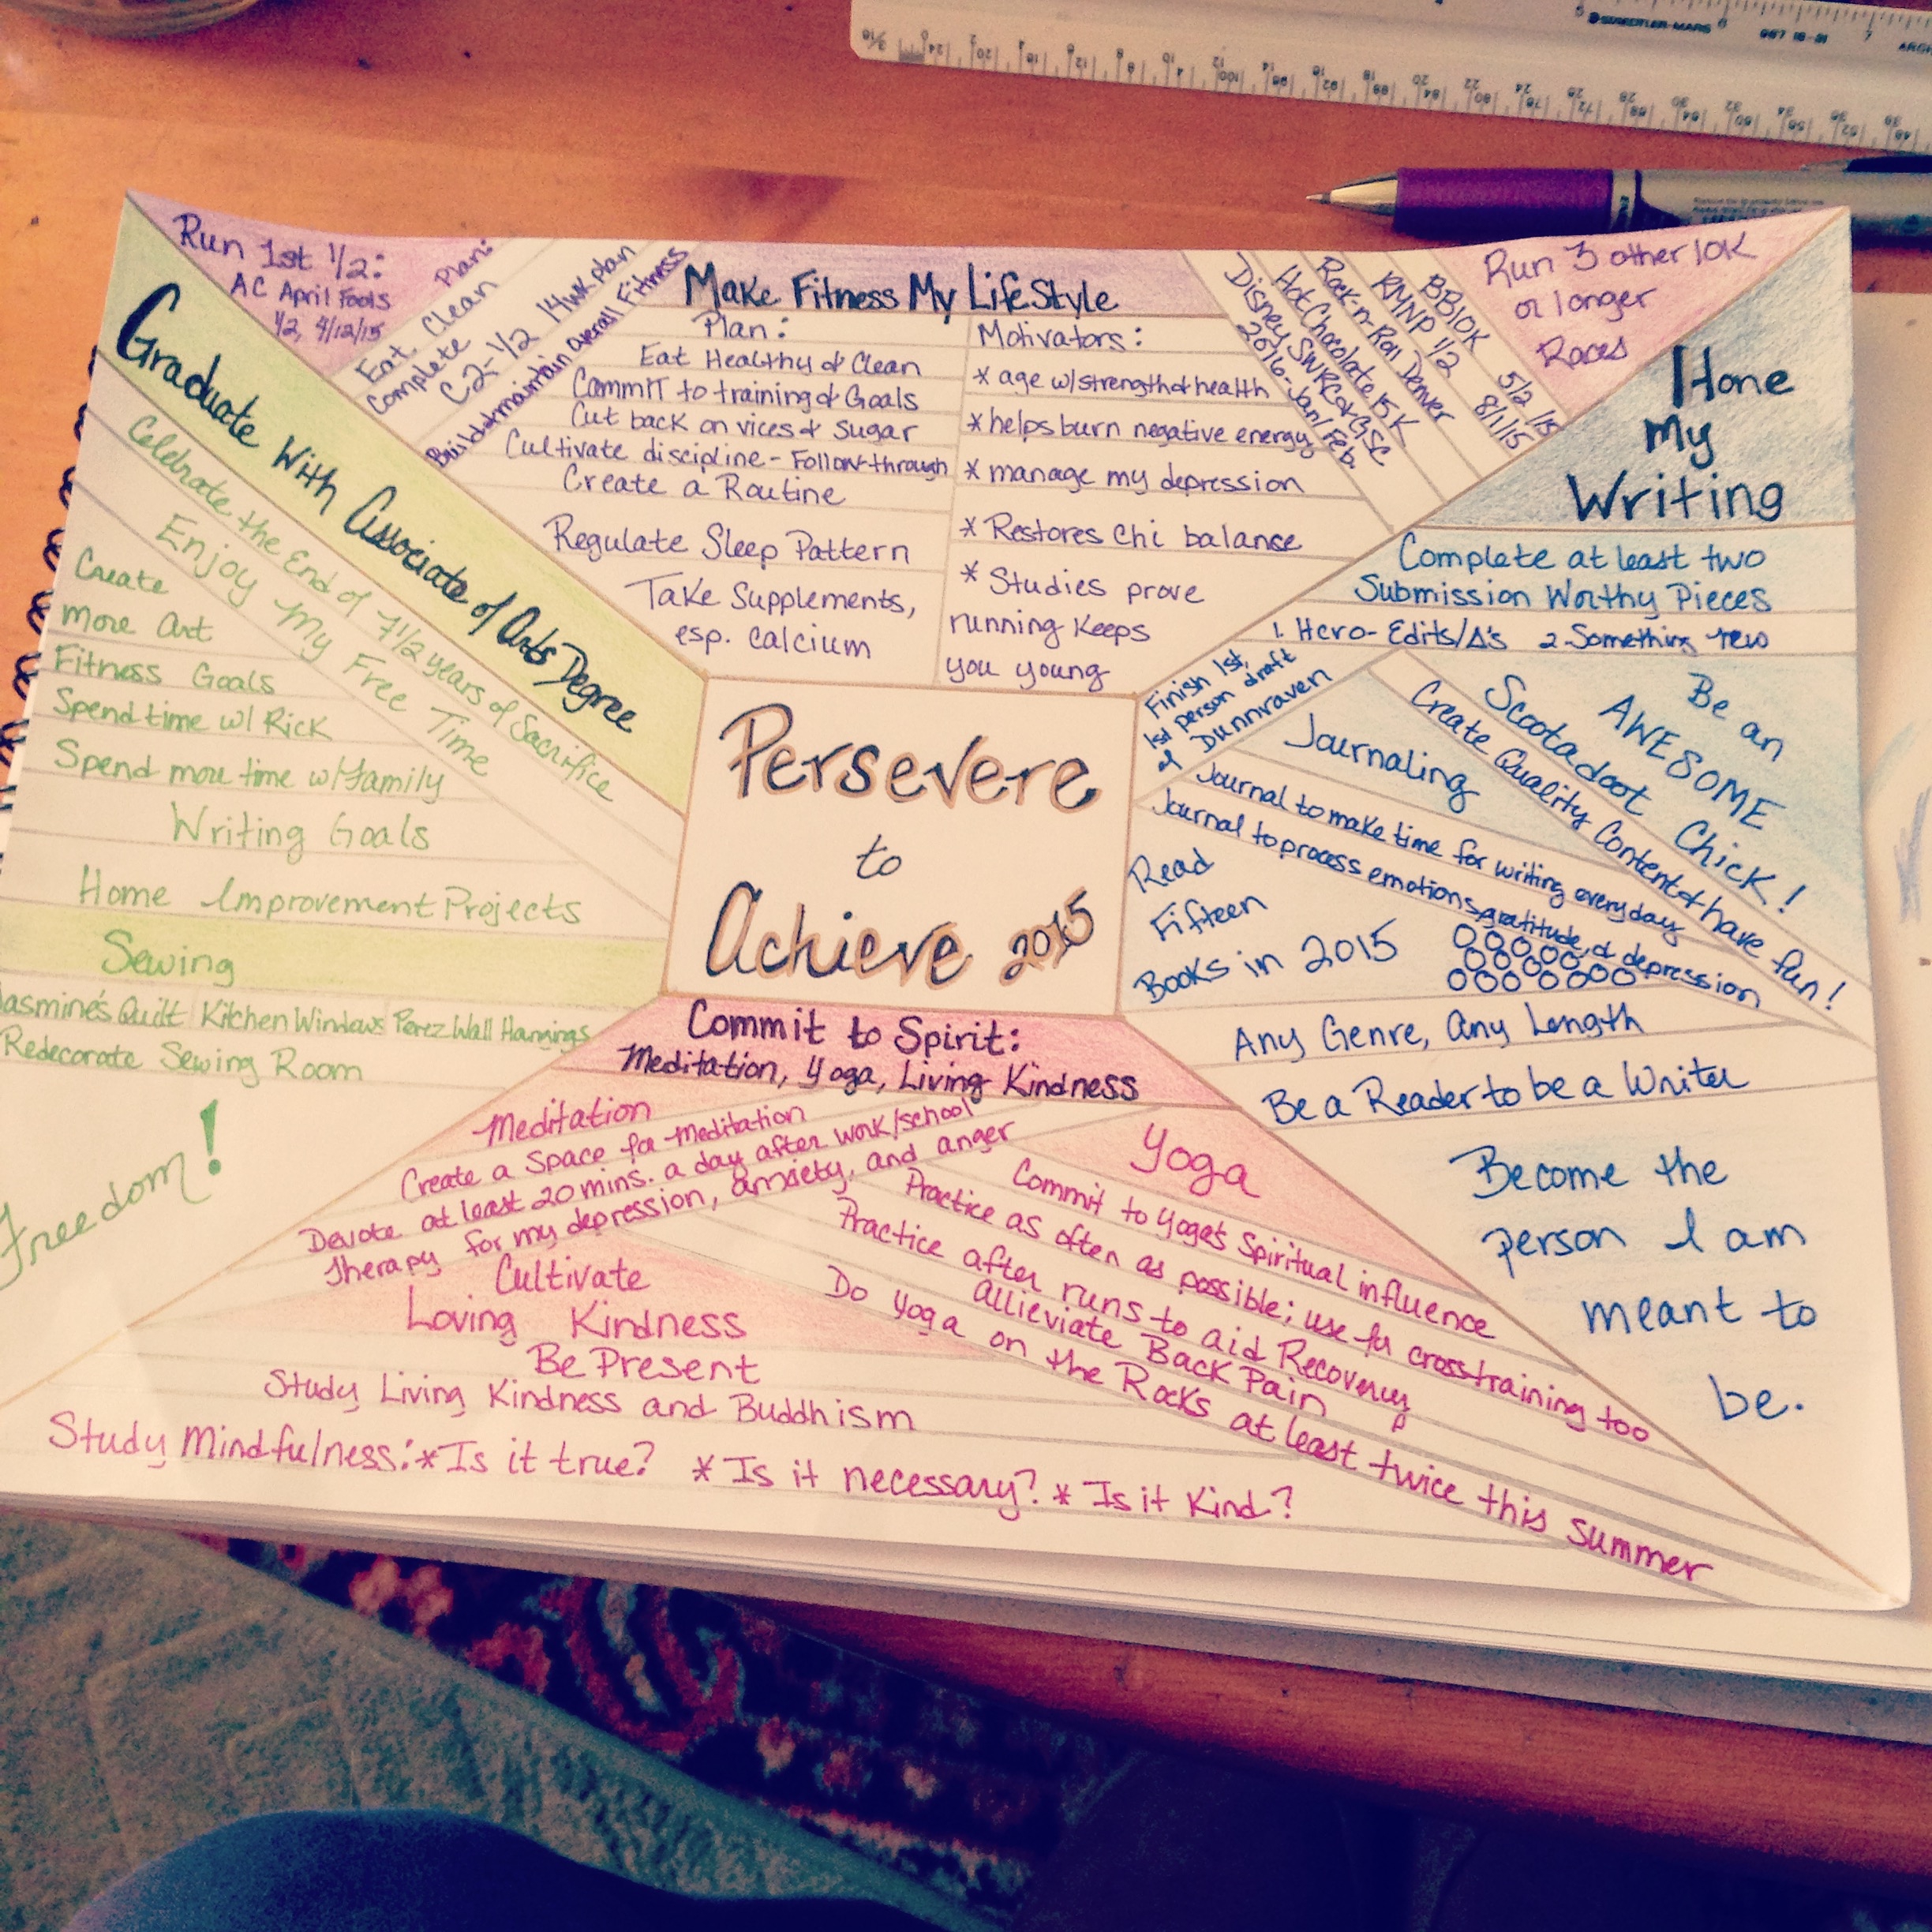 Run 1st 1/2:
AC April Fools
1/2, 4/12/15
Plan:
Eat Clean
Complete
C2-1/2 14wk plan
Build & maintain overall Fitness
Make Fitness My LifeStyle
Plan:
Eat Healthy & Clean
Commit to training & Goals
Cut back on vices & sugar
Cultivate discipline - Follow-through
Create a Routine
Regulate Sleep Pattern
Take Supplements,
esp. calcium
Motivators:
* age w/strength & health
* helps burn negative energy
* manage my depression
* Restores Chi balance
* Studies prove
running keeps
you young
Run 3 other 10K
or longer
Races
BB10K 5/2 /15
RMNP 1/2 8/1/15
Rock-n-Roll Denver
Hot Chocolate 15K
Disney SWRC & GSC
2016-Jan/Feb.
Hone
My
Writing
Complete at least two
Submission Worthy Pieces
1. Hero- Edits/Δ's 2. Something new
Finish 1st,
1st person draft
of Dunnraven
Be an
AWESOME
Scootadoot Chick!
Create Quality Content & have fun!
Journaling
Journal to make time for writing everyday
Journal to process emotions, gratitude, & depression
Read
Fifteen
Books in 2015
Any Genre, Any Length
Be a Reader to be a Writer
Become the
person I am
meant to
be.
Graduate With Associate of Arts Degree
Celebrate the End of 7 1/2 years of Sacrifice
Enjoy My Free Time
Create
More Art
Fitness Goals
Spend time w/ Rick
Spend more time w/Family
Writing Goals
Home Improvement Projects
Sewing
Jasmine's Quilt Kitchen Windows Perez Wall Hangings
Redecorate Sewing Room
Freedom!
Persevere
to
Achieve 2015
Commit to Spirit:
Meditation, Yoga, Living Kindness
Meditation
Create a Space for Meditation
Devote at least 20 mins. a day after work/school
Therapy for my depression, anxiety, and anger
Yoga
Commit to Yoga's Spiritual influence
Practice as often as possible; use for crosstraining too
Practice after runs to aid Recovery
Allieviate Back Pain
Do Yoga on the Rocks at least twice this summer
Cultivate
Loving Kindness
Be Present
Study Living Kindness and Buddhism
Study Mindfulness: * Is it true? * Is it necessary? * Is it Kind?
STAEDTLER-MARS 987 18-31